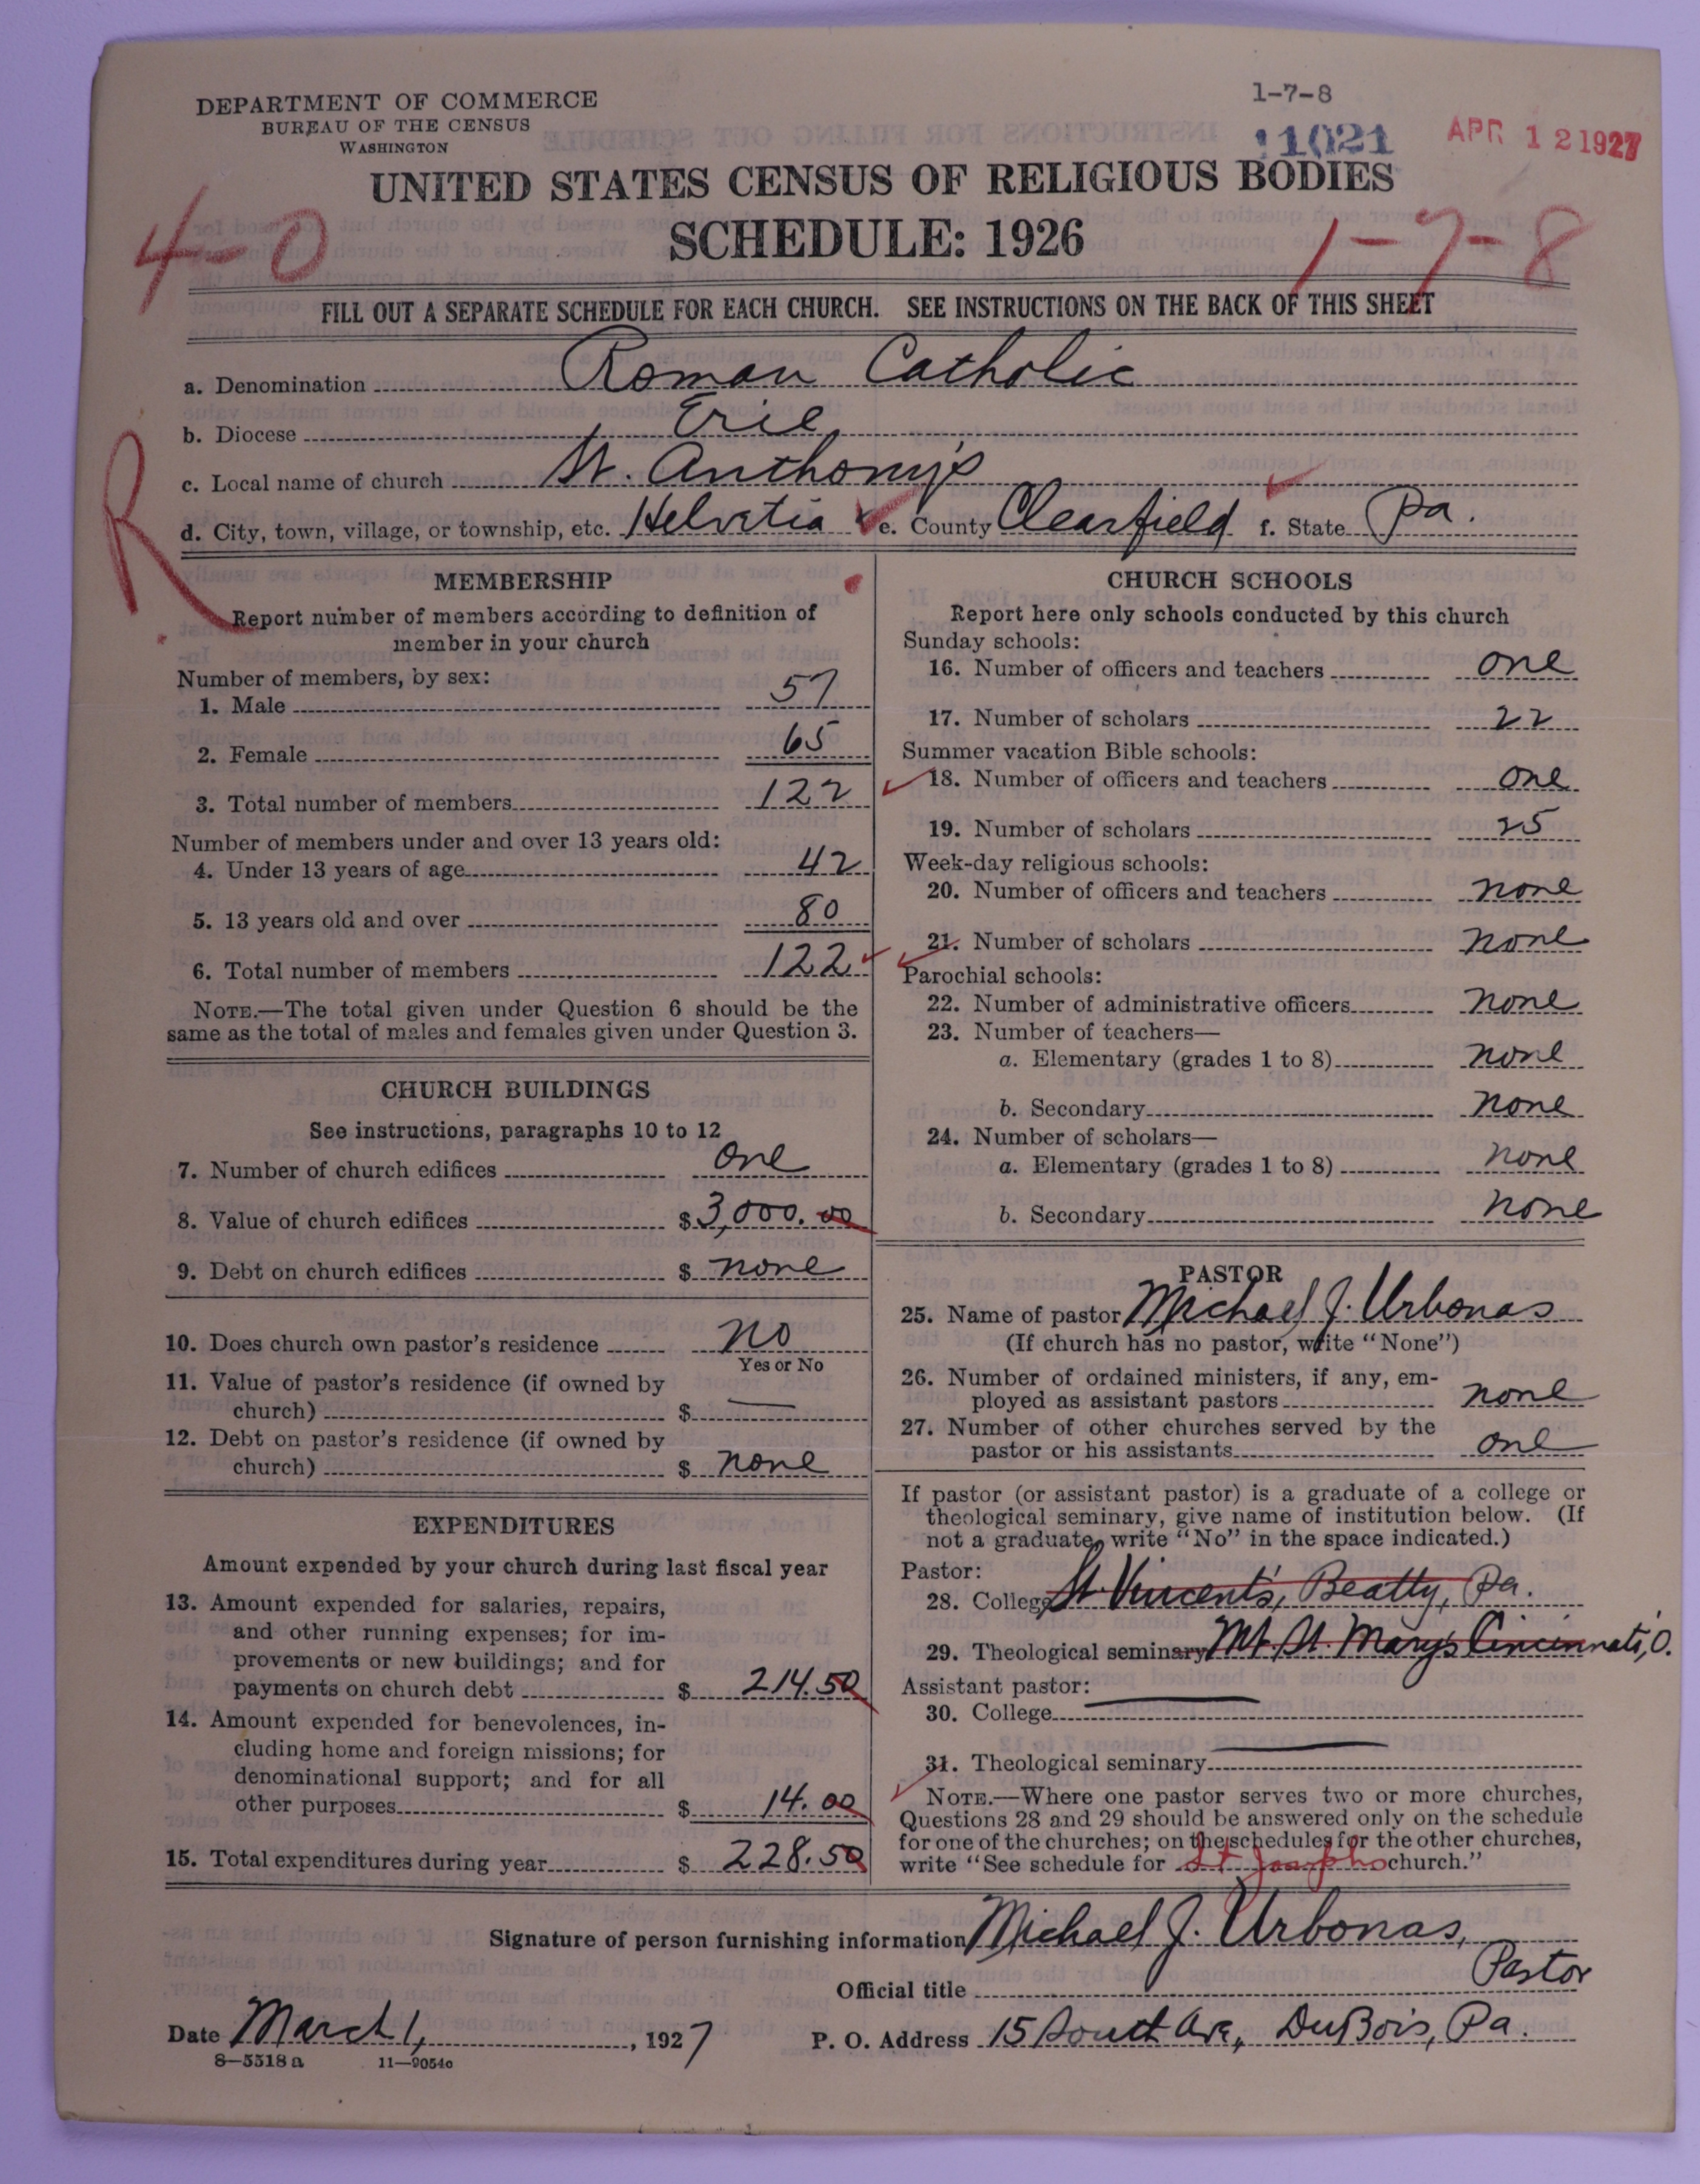 DEPARTMENT OF COMMERCE
BUREAU OF THE CENSUS
WASHINGTON
1-7-8
11021
APR 12 1927
UNITED STATES CENSUS OF RELIGIOUS BODIES
SCHEDULE: 1926
4-0
1-7-8
FILL OUT A SEPARATE SCHEDULE FOR EACH CHURCH. SEE INSTRUCTIONS ON THE BACK OF THIS SHEET
a. Denomination Roman Catholic
b. Diocese Erie
c. Local name of church St. Anthony's
d. City, town, village, or township, etc. Helvetia e. County Clearfield f. State Pa.
R
MEMBERSHIP
Report number of members according to definition of
member in your church
Number of members, by sex:
1. Male 57
2. Female 65
3. Total number of members 122
Number of members under and over 13 years old:
4. Under 13 years of age 42
5. 13 years old and over 80
6. Total number of members 122
NOTE.—The total given under Question 6 should be the
same as the total of males and females given under Question 3.
CHURCH BUILDINGS
See instructions, paragraphs 10 to 12
7. Number of church edifices one
8. Value of church edifices $ 3,000.00
9. Debt on church edifices $ none
10. Does church own pastor's residence No
Yes or No
11. Value of pastor's residence (if owned by
church) $ —
12. Debt on pastor's residence (if owned by
church) $ none
EXPENDITURES
Amount expended by your church during last fiscal year
13. Amount expended for salaries, repairs,
and other running expenses; for im-
provements or new buildings; and for
payments on church debt $ 214.50
14. Amount expended for benevolences, in-
cluding home and foreign missions; for
denominational support; and for all
other purposes $ 14.00
15. Total expenditures during year $ 228.50
CHURCH SCHOOLS
Report here only schools conducted by this church
Sunday schools:
16. Number of officers and teachers one
17. Number of scholars 22
Summer vacation Bible schools:
18. Number of officers and teachers one
19. Number of scholars 25
Week-day religious schools:
20. Number of officers and teachers none
21. Number of scholars none
Parochial schools:
22. Number of administrative officers none
23. Number of teachers—
a. Elementary (grades 1 to 8) none
b. Secondary none
24. Number of scholars—
a. Elementary (grades 1 to 8) none
b. Secondary none
PASTOR
25. Name of pastor Michael J. Urbonas
(If church has no pastor, write "None")
26. Number of ordained ministers, if any, em-
ployed as assistant pastors none
27. Number of other churches served by the
pastor or his assistants one
If pastor (or assistant pastor) is a graduate of a college or
theological seminary, give name of institution below. (If
not a graduate, write "No" in the space indicated.)
Pastor:
28. College St. Vincent's, Beatty, Pa.
29. Theological seminary Mt. St. Mary's Cincinnati, O.
Assistant pastor:
30. College
31. Theological seminary
NOTE.—Where one pastor serves two or more churches,
Questions 28 and 29 should be answered only on the schedule
for one of the churches; on the schedules for the other churches,
write "See schedule for St Josephs church."
Signature of person furnishing information Michael J. Urbonas,
Official title Pastor
Date March 1, 1927 P. O. Address 15 South Ave, DuBois, Pa.
8—5518 a 11—9054c